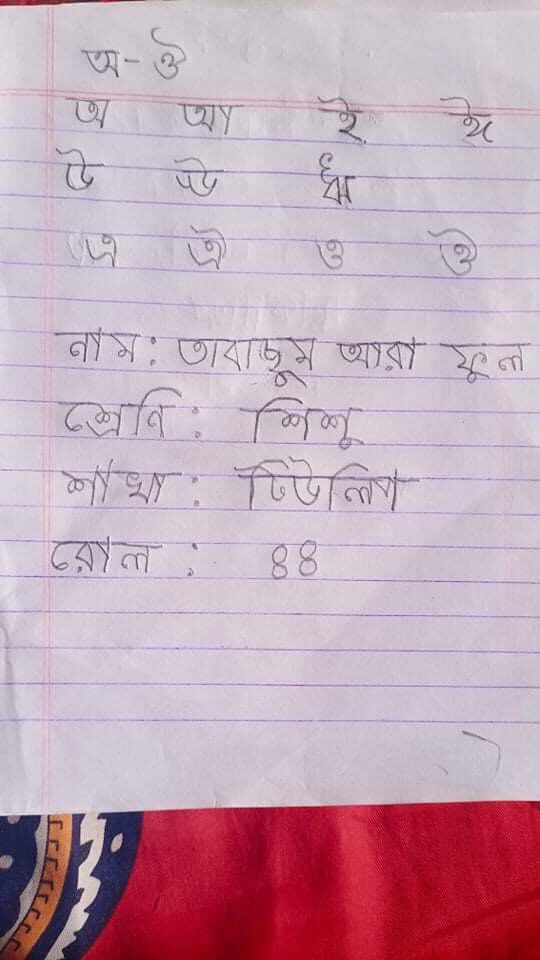 অ-ঔ
অ আ ই ঈ
উ ঊ ঋ
এ ঐ ও ঔ
নাম: তাবাছুম আরা ফুল
শ্রেনি: শিশু
শাখা: টিউলিপ
রোল: ৪৪